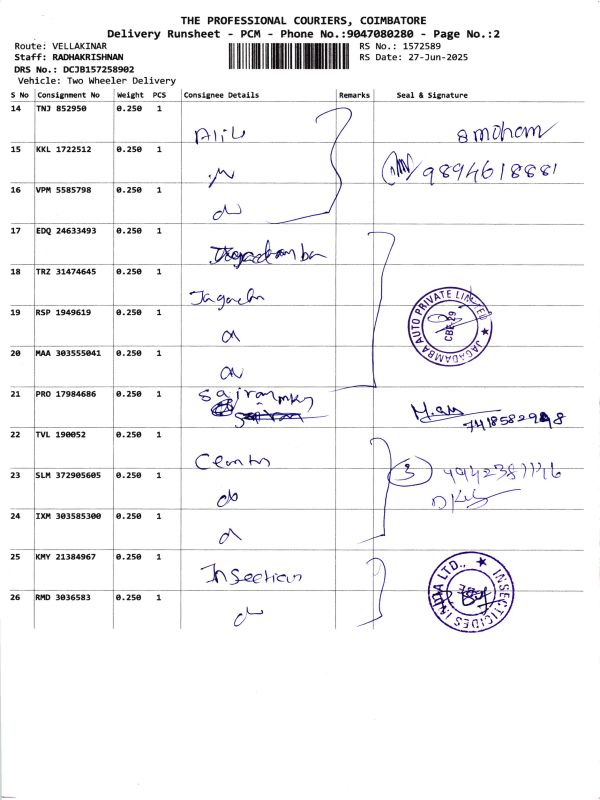 THE PROFESSIONAL COURIERS, COIMBATORE
Delivery Runsheet - PCM - Phone No.:9047080280 - Page No.:2
Route: VELLAKINAR
RS No.: 1572589
Staff: RADHAKRISHNAN
RS Date: 27-Jun-2025
DRS No.: DCJB157258902
Vehicle: Two Wheeler Delivery
S No Consignment No Weight PCS Consignee Details Remarks Seal & Signature
14 TNJ 852950 0.250 1
15 KKL 1722512 0.250 1
9894618881
16 VPM 5585798 0.250 1
17 EDQ 24633493 0.250 1
Jagadamba
18 TRZ 31474645 0.250 1
19 RSP 1949619 0.250 1
JAGADAMBA AUTO PRIVATE LIMITED
CBE-29
20 MAA 303555041 0.250 1
21 PRO 17984686 0.250 1
22 TVL 190052 0.250 1
23 SLM 372905605 0.250 1
3
24 IXM 303585300 0.250 1
25 KMY 21384967 0.250 1
INSECTICIDES INDIA LTD.,
26 RMD 3036583 0.250 1